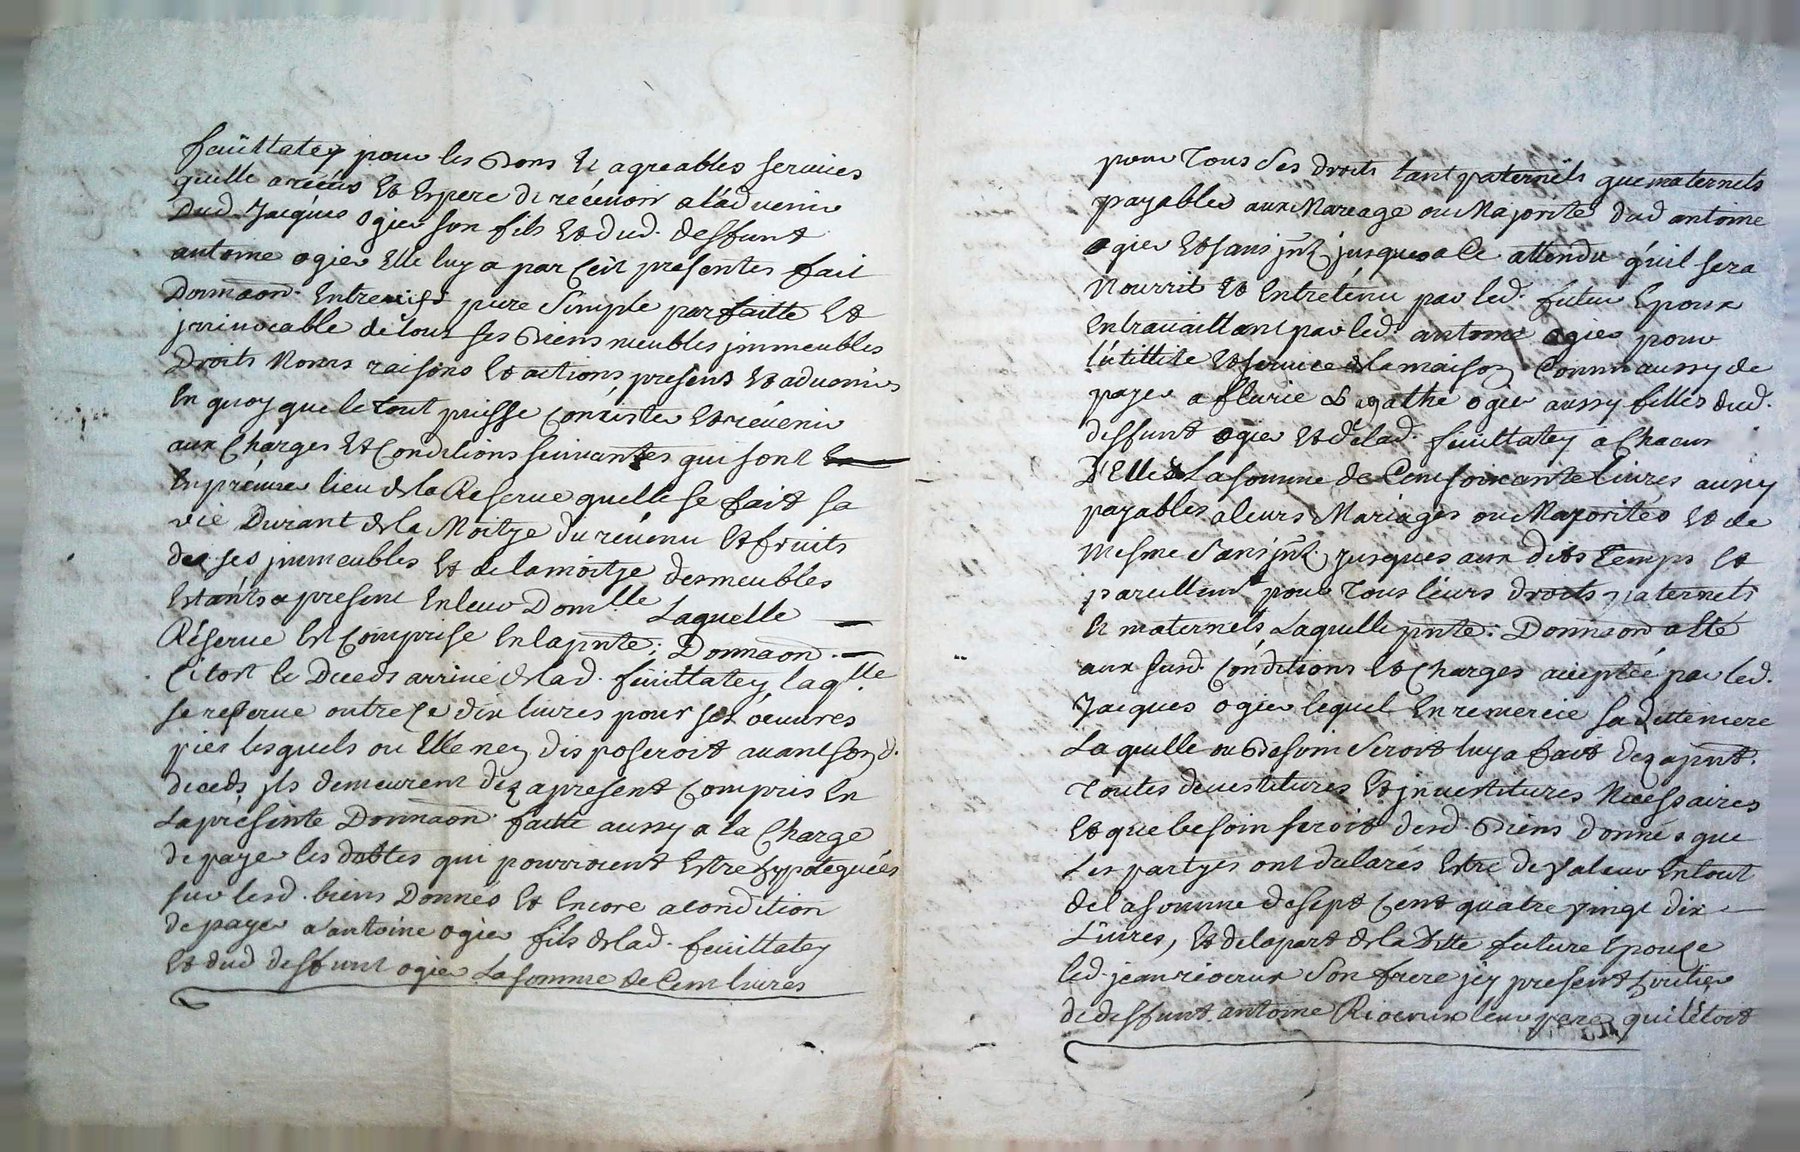 feüillatey pour les bons Et agreables services
quelle a reçeus Et Espere de récevoir a l'advenir
Dud. Jacques ogier son fils Et dud. deffunt
antoine ogier Elle luy a par çeit presentes fait
Donnaon. Entrevifs pure Simple parfaitte Et
jrrévocable de tout ses biens meubles jmmeubles
Droits Noms raisons Et actions, presens Et advenir
En quoy que le tout puisse Consister Et révenir
aux Charges Et Conditions suivantes qui sont
En prémier lieu de la Réserve quelle se fait sa
vie Durant de la Moitye du révenu Et fruits
de ses jmmeubles Et de la moitye des meubles
Estants a present En leur Domille Laquelle
Réserve Est Comprise En la pnte. Donnaon.
Citost le Deceds arrivé de lad. feüillatey laqlle
se reserve outre çe dix livres pour ses oeuvres
pies lesquels ou Elle ney disposeroit avant son d.
deceds jls demeurent dez a present Compris En
La présente Donnaon. faitte aussy a la Charge
de payer les debtes qui pourroient Estre hypotequées
sur lesd. biens Donnés Et Encore a condition
de payer a antoine ogier fils de lad. feuillatey
Et dud deffunt ogier La somme de Cent livres
pour Tous Ses droits tant paternels que maternels
payables aux Mareage ou Majorité dud antoine
ogier Et sans jnt. jusques a Ce attendu qúil sera
Nourrit Et Entreténu par led. futur Epoux
En travaillant par led. antoine ogier pour
l'utillité Et service de la maison Comm' aussy de
payer a fleurie & agathe ogier aussy filles dud.
deffunt ogier Et de lad. feuillatey a Chacun
D'Elles La somme de Cent soixante livres aussy
payables a leurs Mariages ou Majorites Et de
mesme Sans jnt. jusques aux dits Temps Et
pareillemt pour Tous leurs droits paternels
Et maternels Laquelle pnte. Donnaon a Esté
aux susd. Conditions Et Charges acceptée par led.
Jacques ogier lequel En remercie sa ditte mere
Laquelle ou Besoin Seroit luy a fait dez a pnt.
Toutes devestitures Et jnvestitures Necessaires
Et que besoin seroit desd. Biens donnés que
Les partyes ont déclarés Estre de valeur En tout
de la somme de sept Cent quatre vingt dix
Livres, Et de la part de la ditte future Epouze
led. jean rioeux Son frere jcy present héritier
de deffunt antoine Rioeux leur pere quil étoit